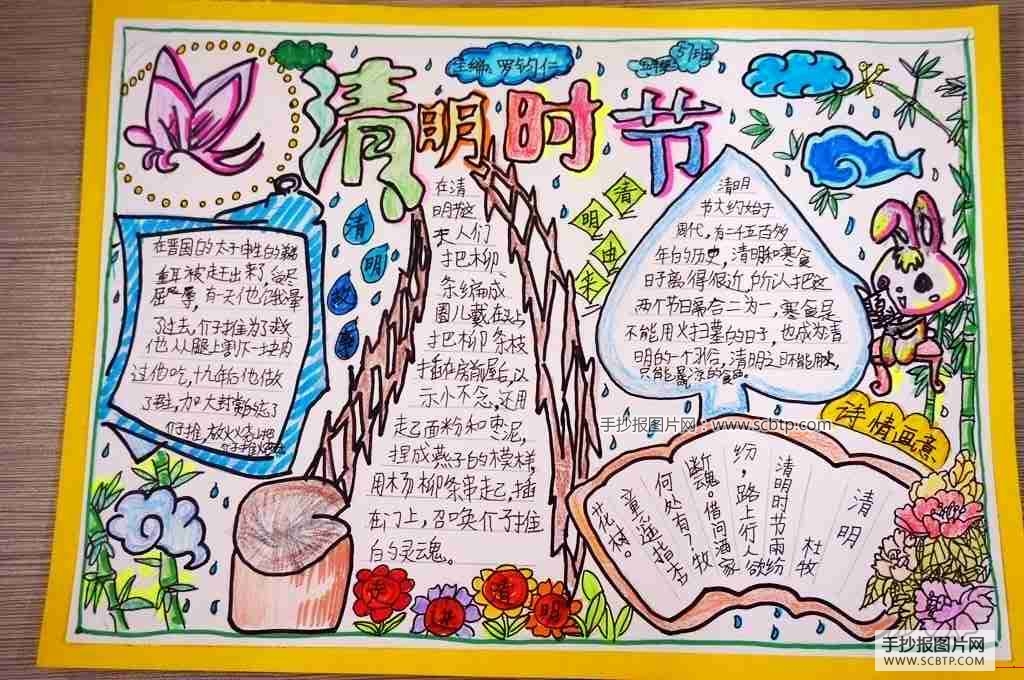 清明时节
主编：罗钧仁
清
明
故
清
明
由
来
在晋国的太子申生的
重耳被赶出来了，
屈辱，有天他饿晕
了过去，介子推为了救
他从腿上割下一块肉
过他吃，十九年后他做
放火
在清
明节这
天人们
把柳
条编成
圈儿戴在头上
把柳条枝
插在房前屋后，以
示小不念，还用
走己面粉和枣泥，
捏成燕子的模样，
用杨柳条串起，插
在门上，召唤介子推
的灵魂。
清明
节大约始于
周代，有二千五百多
年的历史，清明和寒食
日子离得很近，所以把这
两个节日离合二为一，寒食是
不能用火扫墓的日子，也成为清
明的一个习俗，清明之日不能用火，
只能
诗情画意
清明
杜牧
清明时节雨纷
纷，路上行人欲
断魂。借问酒家
何处有？牧
童遥指杏
花村。
清
明
手抄报图片网：www.scbtp.com
手抄报图片网
WWW.SCBTP.COM